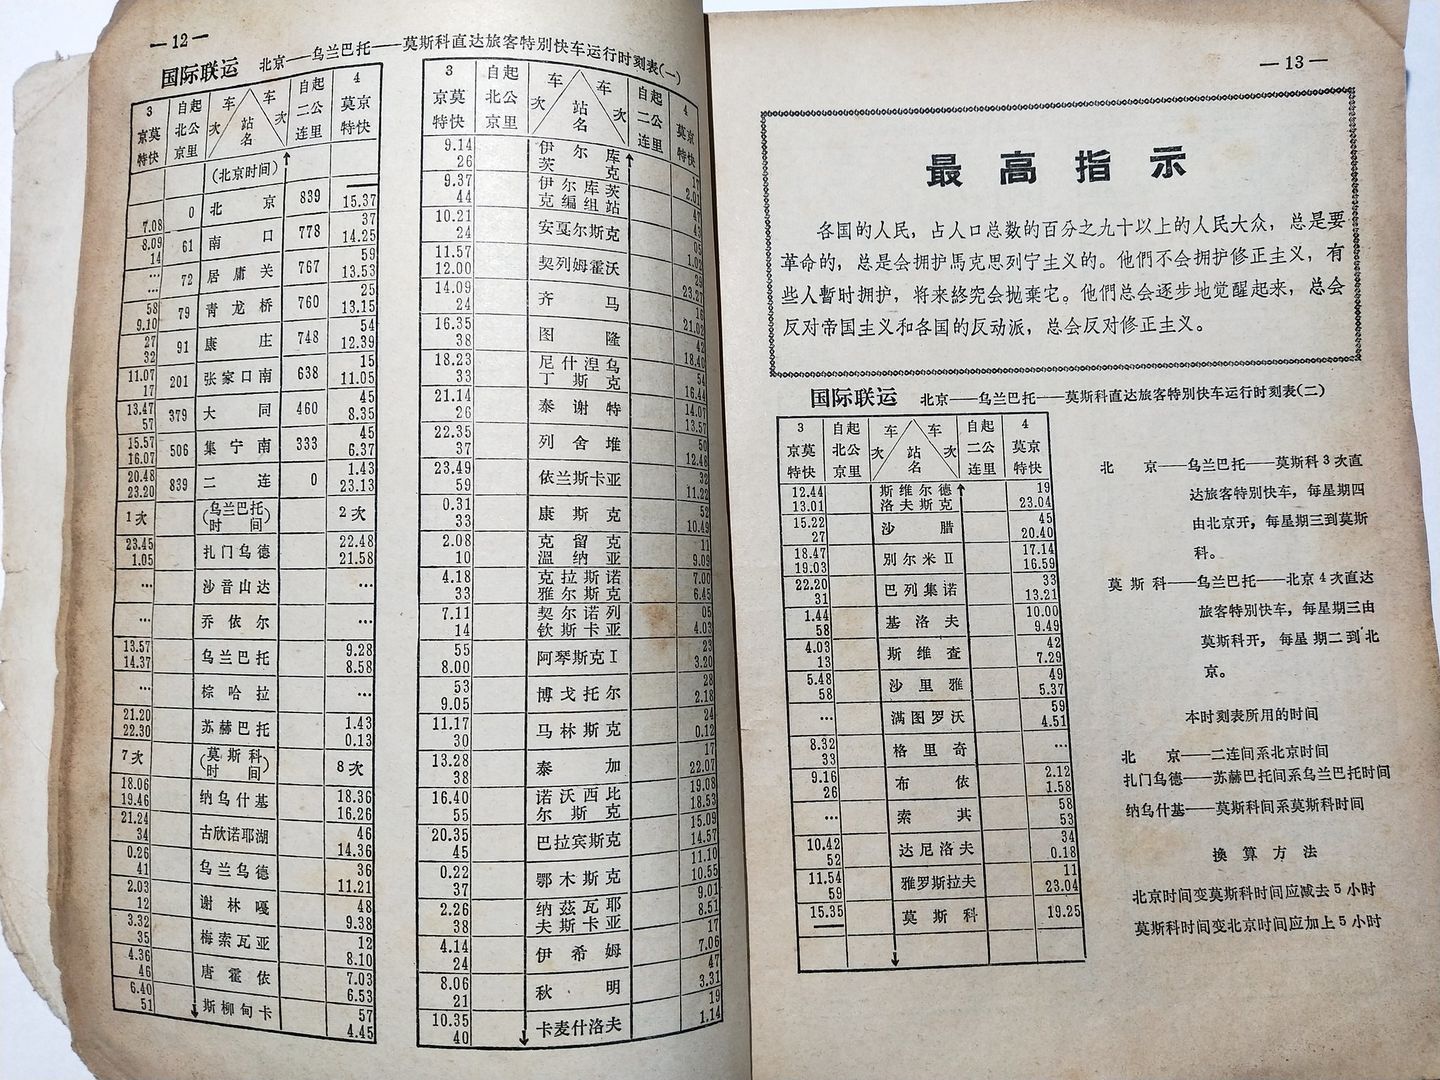 —12—
国际联运 北京——乌兰巴托——莫斯科直达旅客特别快车运行时刻表(一)
3 自起 车 车 自起 4
京莫 北公 次 站 次 二公 莫京
特快 京里 名 连里 特快
(北京时间)
7.08 0 北京 839 15.37
8.09 61 南口 778 37
14 14.25
… 72 居庸关 767 59
13.53
58 79 青龙桥 760 25
9.10 13.15
27 91 康庄 748 54
32 12.39
11.07 201 张家口南 638 15
17 11.05
13.47 379 大同 460 45
57 8.35
15.57 506 集宁南 333 45
16.07 6.37
20.48 839 二连 0 1.43
23.20 23.13
1次 (乌兰巴托时间) 2次
23.45 扎门乌德 22.48
1.05 21.58
… 沙音山达 …
… 乔依尔
13.57 乌兰巴托 9.28
14.37 8.58
… 棕哈拉 …
21.20 苏赫巴托 1.43
22.30 0.13
7次 (莫斯科时间) 8次
18.06 纳乌什基 18.36
19.46 16.26
21.24 古欣诺耶湖 46
34 14.36
0.26 乌兰乌德 36
41 11.21
2.03 谢林嘎 48
12 9.38
3.32 梅索瓦亚 12
35 8.10
4.36 唐霍依 7.03
46 6.53
6.40 斯柳甸卡 57
51 4.45
3 自起 车 车 自起 4
京莫 北公 次 站 次 二公 莫京
特快 京里 名 连里 特快
9.14 伊尔库 17
26 茨克 2.01
9.37 伊尔库茨 47
44 克编组站 43
10.21 安戛尔斯克 05
24 1.02
11.57 契列姆霍沃 29
12.00 23.27
14.09 齐马 16
24 21.02
16.35 图隆 42
38 18.40
18.23 尼什涅乌 54
33 丁斯克 16.44
21.14 泰谢特 14.07
26 13.57
22.35 列舍堆 50
37 12.48
23.49 依兰斯卡亚 32
59 11.22
0.31 康斯克 52
33 10.49
2.08 克留克 11
10 温纳亚 9.09
4.18 克拉斯诺 7.00
33 雅尔斯克 6.45
7.11 契尔诺列 05
14 钦斯卡亚 4.03
55 阿琴斯克I 23
8.00 3.20
53 博戈托尔 28
9.05 2.18
11.17 马林斯克 24
30 0.12
13.28 泰加 17
38 22.07
16.40 诺沃西比 19.08
55 尔斯克 18.53
20.35 巴拉宾斯克 15.09
45 14.57
0.22 鄂木斯克 11.10
37 10.55
2.26 纳兹瓦耶 9.01
38 夫斯卡亚 8.51
4.14 伊希姆 17
24 7.06
8.06 秋明 47
21 3.31
10.35 卡麦什洛夫 19
40 1.14
—13—
最高指示
各国的人民，占人口总数的百分之九十以上的人民大众，总是要
革命的，总是会拥护馬克思列宁主义的。他們不会拥护修正主义，有
些人暫时拥护，将来終究会抛棄它。他們总会逐步地觉醒起来，总会
反对帝国主义和各国的反动派，总会反对修正主义。
国际联运 北京——乌兰巴托——莫斯科直达旅客特别快车运行时刻表(二)
3 自起 车 车 自起 4
京莫 北公 次 站 次 二公 莫京
特快 京里 名 连里 特快
12.44 斯维尔德 19
13.01 洛夫斯克 23.04
15.22 沙腊 45
27 20.40
18.47 别尔米II 17.14
19.03 16.59
22.20 巴列集诺 33
31 13.21
1.44 基洛夫 10.00
58 9.49
4.03 斯维查 42
13 7.29
5.48 沙里雅 49
58 5.37
… 满图罗沃 59
4.51
8.32 格里奇 …
33
9.16 布依 2.12
26 1.58
… 索其 58
53
10.42 达尼洛夫 34
52 0.18
11.54 雅罗斯拉夫 11
59 23.04
15.35 莫斯科 19.25
北京——乌兰巴托——莫斯科3次直
达旅客特别快车，每星期四
由北京开，每星期三到莫斯
科。
莫斯科——乌兰巴托——北京4次直达
旅客特别快车，每星期三由
莫斯科开，每星期二到北
京。
本时刻表所用的时间
北京——二连间系北京时间
扎门乌德——苏赫巴托间系乌兰巴托时间
纳乌什基——莫斯科间系莫斯科时间
换算方法
北京时间变莫斯科时间应减去5小时
莫斯科时间变北京时间应加上5小时